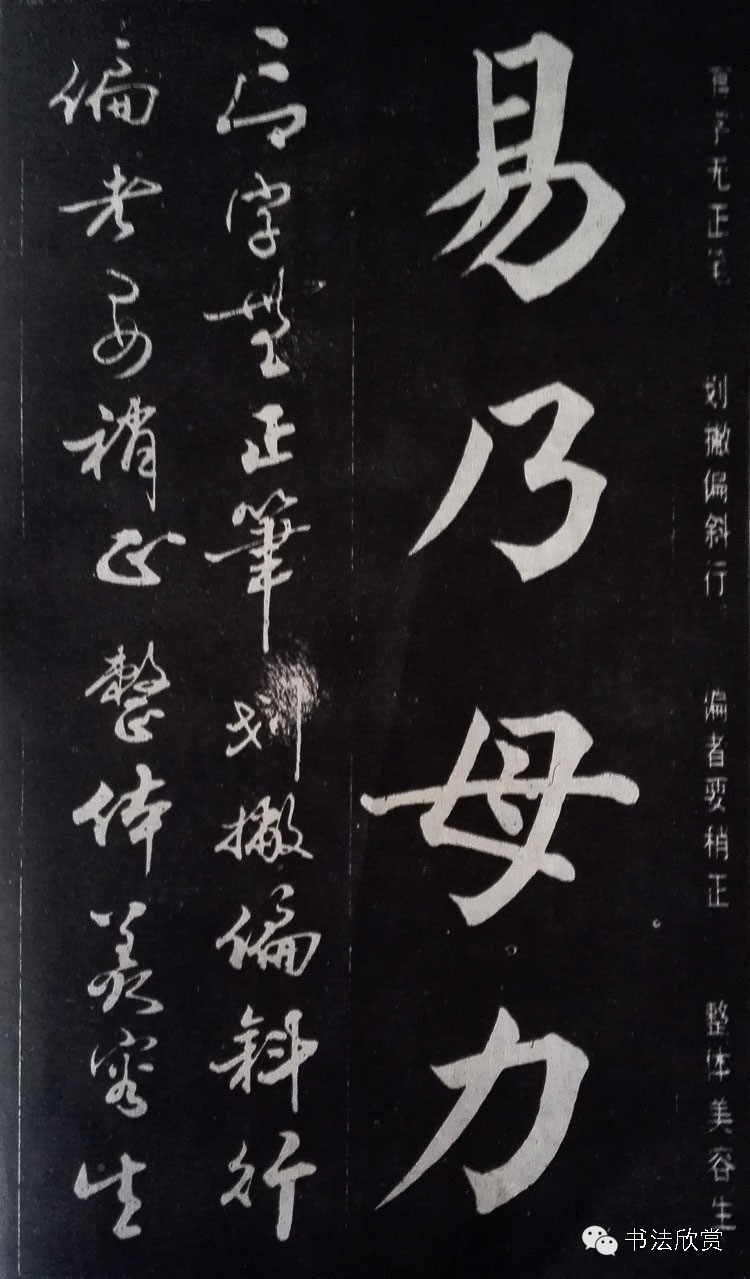 字无正笔 划撇偏斜行 偏者要稍正 整体美容生
易乃母力
字無正筆划撇偏斜行
偏者要稍正整体美容生
书法欣赏